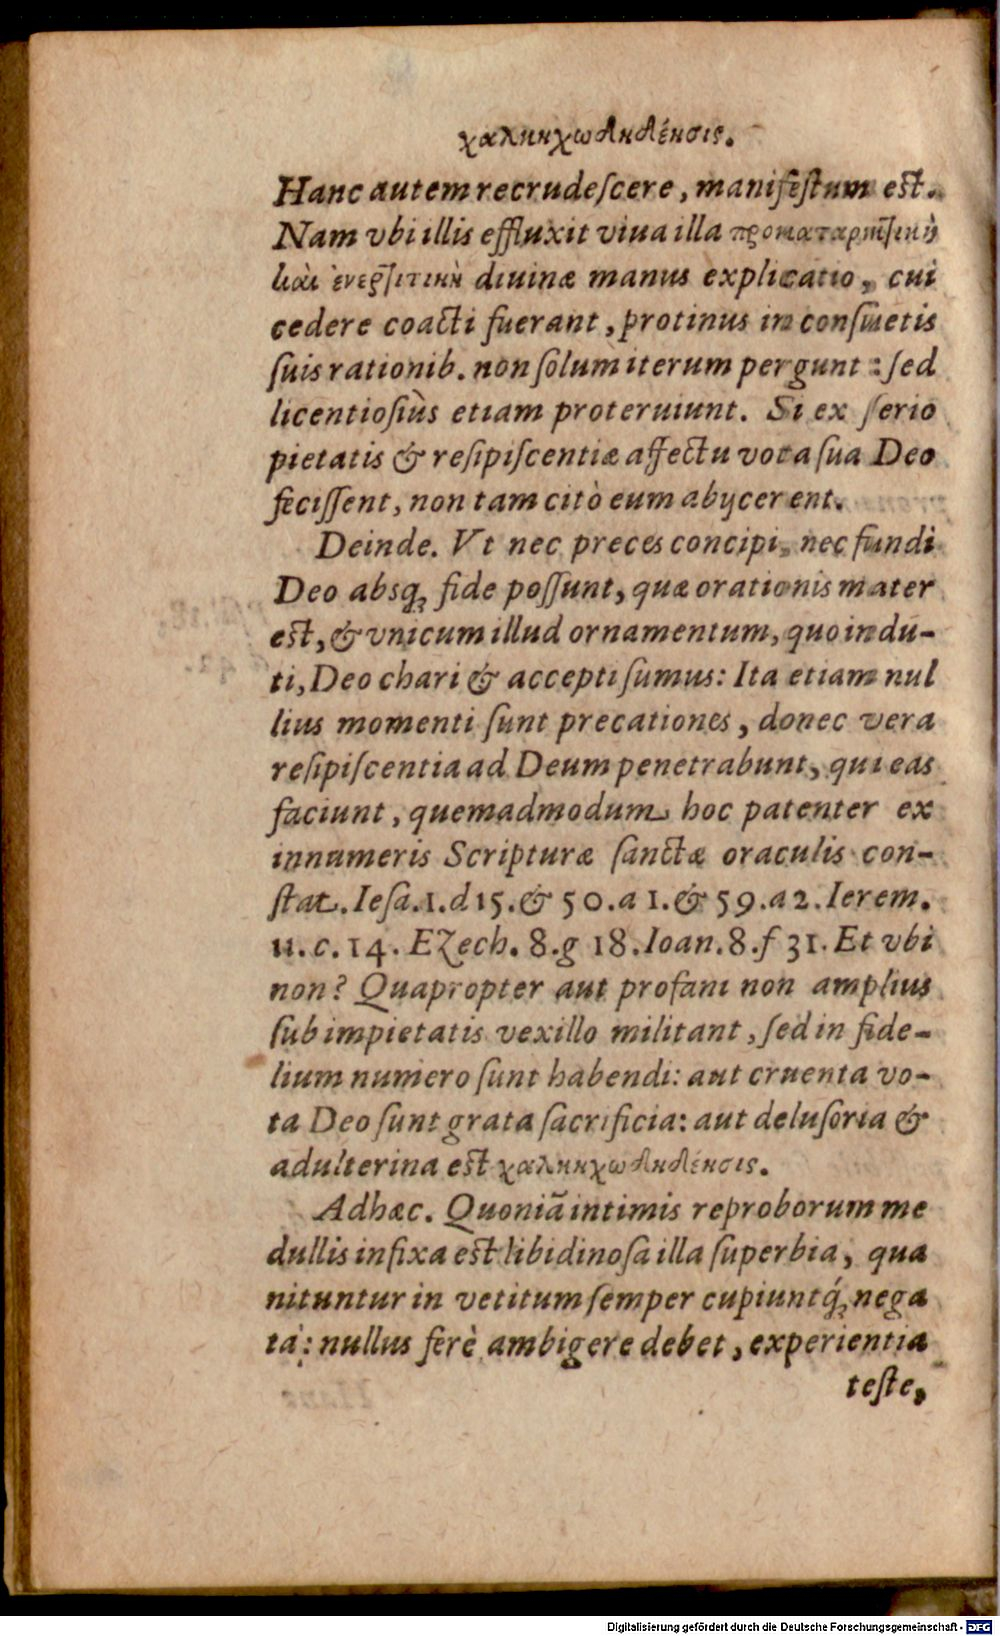 χαλκηχωδηδένσις.
Hanc autem recrudeſcere, manifeſtum eſt.
Nam vbi illis effluxit viua illa
καὶ diuinæ manus explicatio, cui
cedere coacti fuerant, protinus in conſuetis
ſuis rationib. non ſolum iterum pergunt: ſed
licentioſiùs etiam proteruiunt. Si ex ſerio
pietatis & reſipiſcentiæ affectu vota ſua Deo
feciſſent, non tam citò eum abijcerent.
Deinde. Vt nec preces concipi, nec fundi
Deo absq; fide poſſunt, quæ orationis mater
eſt, & vnicum illud ornamentum, quo indu-
ti, Deo chari & accepti ſumus: Ita etiam nul
lius momenti ſunt precationes, donec vera
reſipiſcentia ad Deum penetrabunt, qui eas
faciunt, quemadmodum hoc patenter ex
innumeris Scripturæ ſanctæ oraculis con-
ſtat. Ieſa. 1. d 15. & 50. a 1. & 59. a 2. Ierem.
11. c. 14. Ezech. 8. g 18. Ioan. 8. f 31. Et vbi
non? Quapropter aut profani non amplius
ſub impietatis vexillo militant, ſed in fide-
lium numero ſunt habendi: aut cruenta vo-
ta Deo ſunt grata ſacrificia: aut deluſoria &
adulterina eſt χαλκηχωδηδένσις.
Adhæc. Quoniã intimis reproborum me
dullis infixa eſt libidinoſa illa ſuperbia, qua
nituntur in vetitum ſemper cupiuntq́; nega
ta: nullus ferè ambigere debet, experientia
teſte,
Digitalisierung gefördert durch die Deutsche Forschungsgemeinschaft - DFG